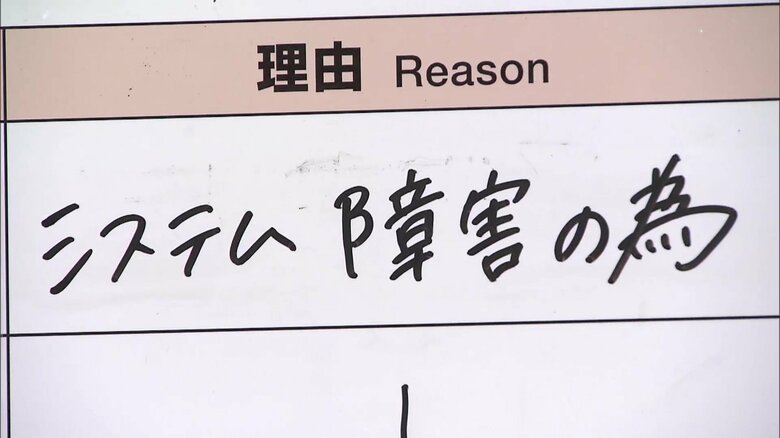 理由 Reason
システム障害の為